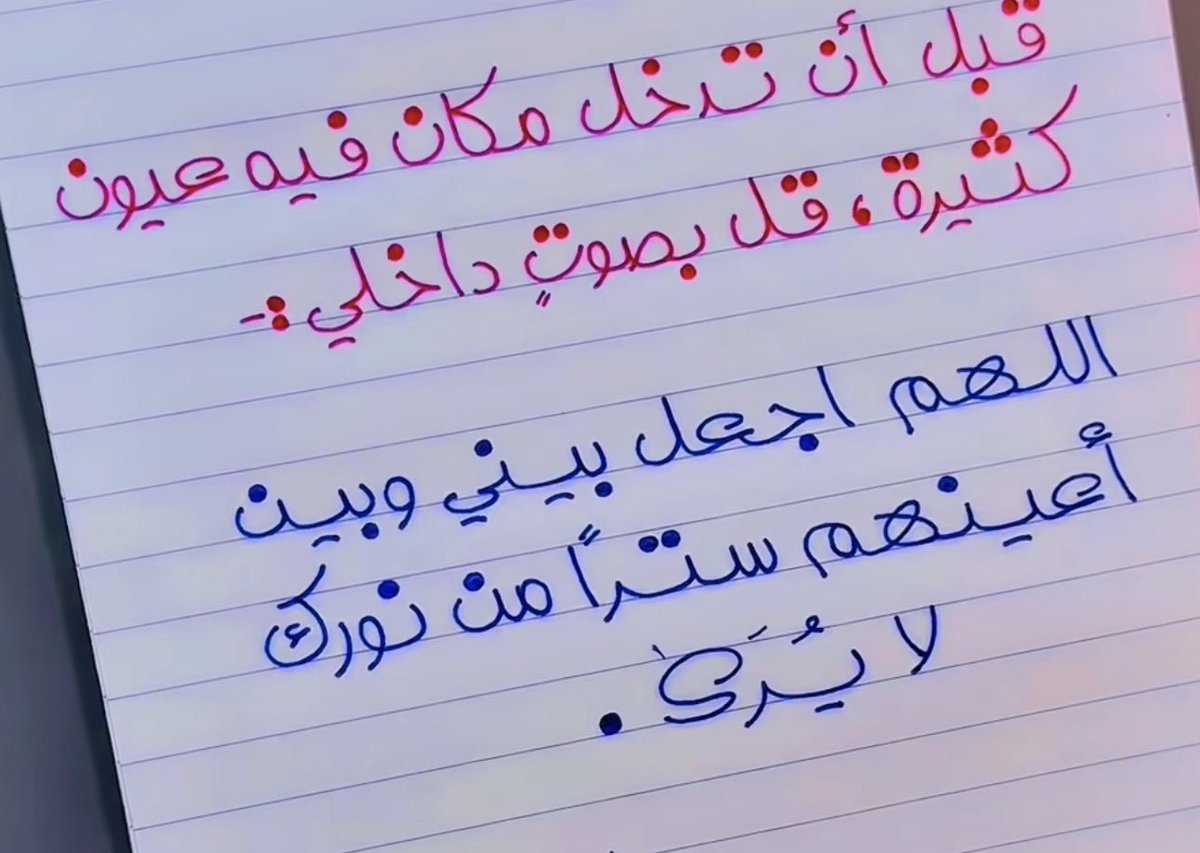 قبل أن تدخل مكان فيه عيون
كثيرة، قل بصوتٍ داخلي :-
اللهم اجعل بيني وبين
أعينهم ستراً من نورك
لا يُرَى .